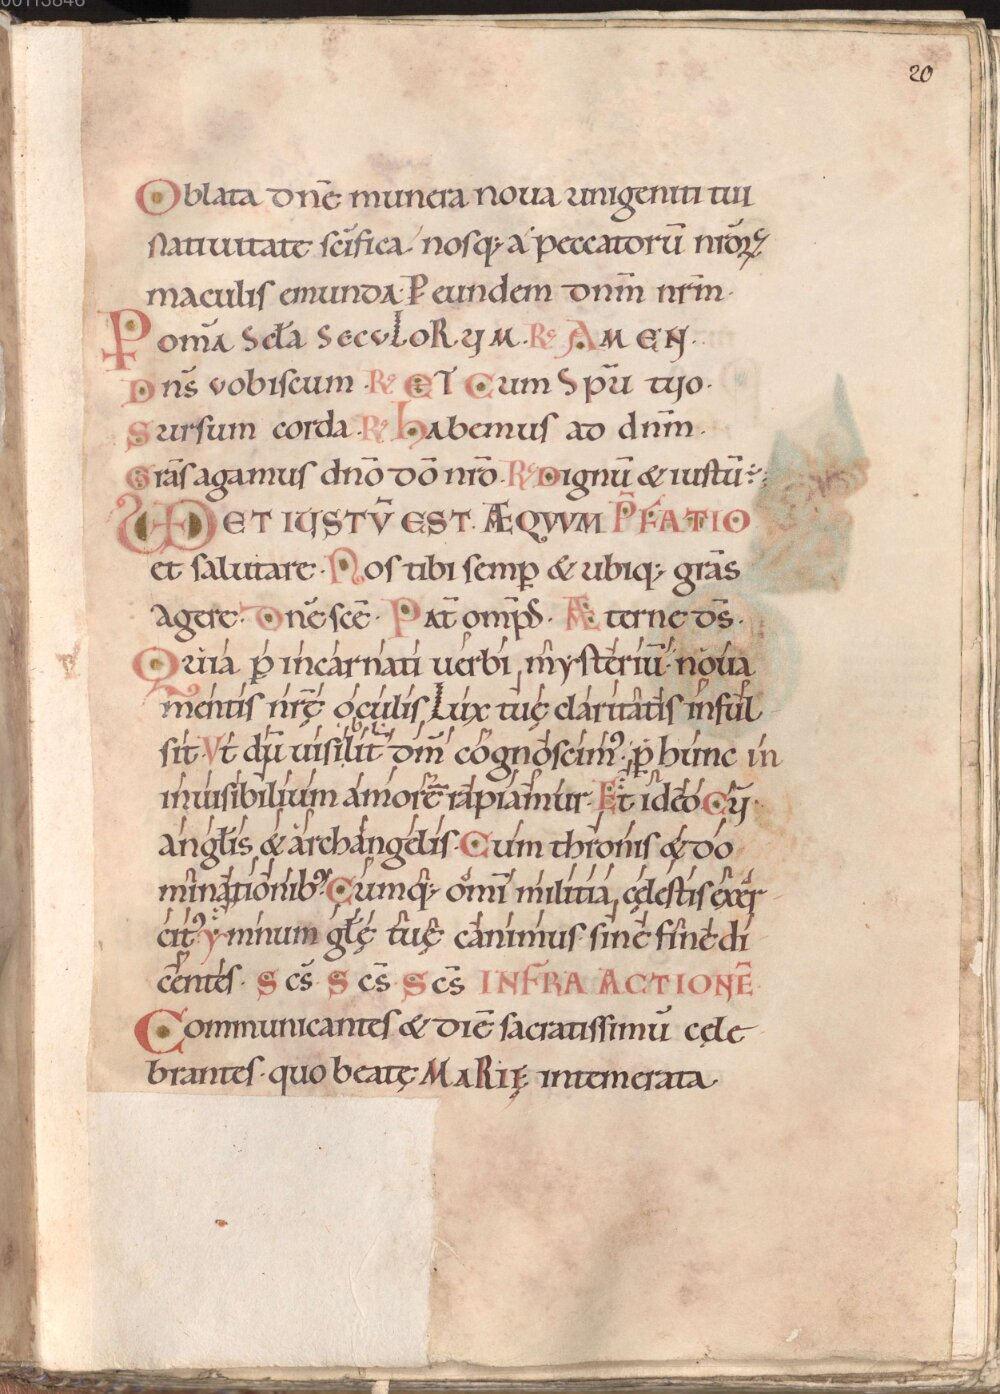 20
Oblata dn̄e munera noua unigeniti tui
natiuitate sc̄ifica nosq; a peccatorū nr̄orꝝ
maculis emunda. P eundem dnm̄ nr̄m.
P om̄a scła secvloRum. R AMEN.
Dn̄s vobiscum. R ET Cum Spū tuo.
Sursum corda. R habemus ad dnm̄.
Grās agamus dnō dō nrō. R Dignū & iustū.
VD ET IUSTV̄ EST. ÆQVVM P̄FATIO
et salutare. Nos tibi semꝑ & ubiq; grās
agere. Dn̄e sc̄e. Pat̄ omp̄s. Æterne ds̄.
Quia ꝑ incarnati uerbi mysteriū noua
mentis nr̄ę oculis Lux tuę claritatis inful
sit. Vt dū uisibilit̄ dm̄ cognoscim; ꝑ hunc in
inuisibilium amorē rapiamur. Et ideo Cū
angłis & archangelis. Cum thronis & do
minationib; Cumq; om̄i militia cęlestis exer
cit; ymnum głę tuę canimus sine fine di
centes. Scs̄ Scs̄ Scs̄ INFRA ACTIONĒ
Communicantes & diē sacratissimū cęle
brantes. quo beatę MaRIę intemerata